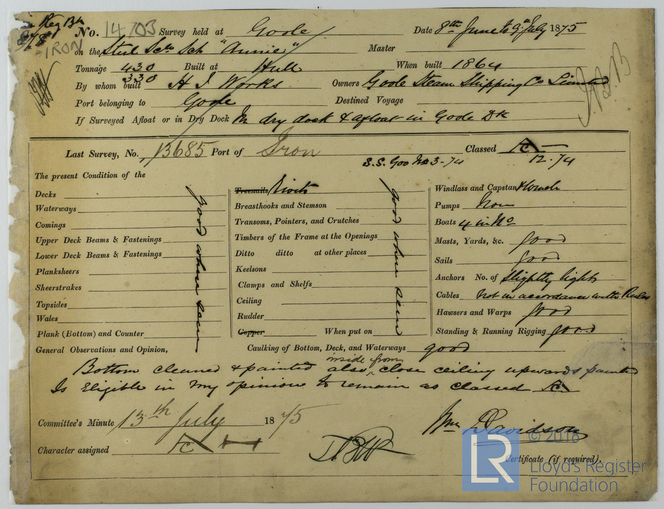 No. 14703 Survey held at Goole Date 8th June to 9th July 1875
IRON
on the Stl Scr Sch "Annie" Master
Tonnage 430 Built at Hull When built 1864
330
By whom built H I Works Owners Goole Steam Shipping Co Limited
Port belonging to Goole Destined Voyage
If Surveyed Afloat or in Dry Dock In dry dock & afloat in Goole Dk
Last Survey, No. 13685 Port of Iron Classed
S.S. Goo No 3-74 12.74
The present Condition of the
Decks
Waterways
Comings
Upper Deck Beams & Fastenings
Lower Deck Beams & Fastenings
Planksheers
Sheerstrakes
Topsides
Wales
Plank (Bottom) and Counter
good where seen
Treenails Rivets
Breasthooks and Stemson
Transoms, Pointers, and Crutches
Timbers of the Frame at the Openings
Ditto ditto at other places
Keelsons
Clamps and Shelfs
Ceiling
Rudder
Copper When put on
good where seen
Windlass and Capstan
Pumps
Boats 4 in No
Masts, Yards, &c. good
Sails good
Anchors No. of Slightly light
Cables Not in accordance with Rules
Hawsers and Warps good
Standing & Running Rigging good
General Observations and Opinion, Caulking of Bottom, Deck, and Waterways good
inside from
Bottom cleaned & painted also close ceiling upwards painted
Is Eligible in my opinion to remain as classed
Committee's Minute 13th July 1875
Wm Davidson
Character assigned
Certificate (if required).
LR © 2018
Lloyd's Register
Foundation